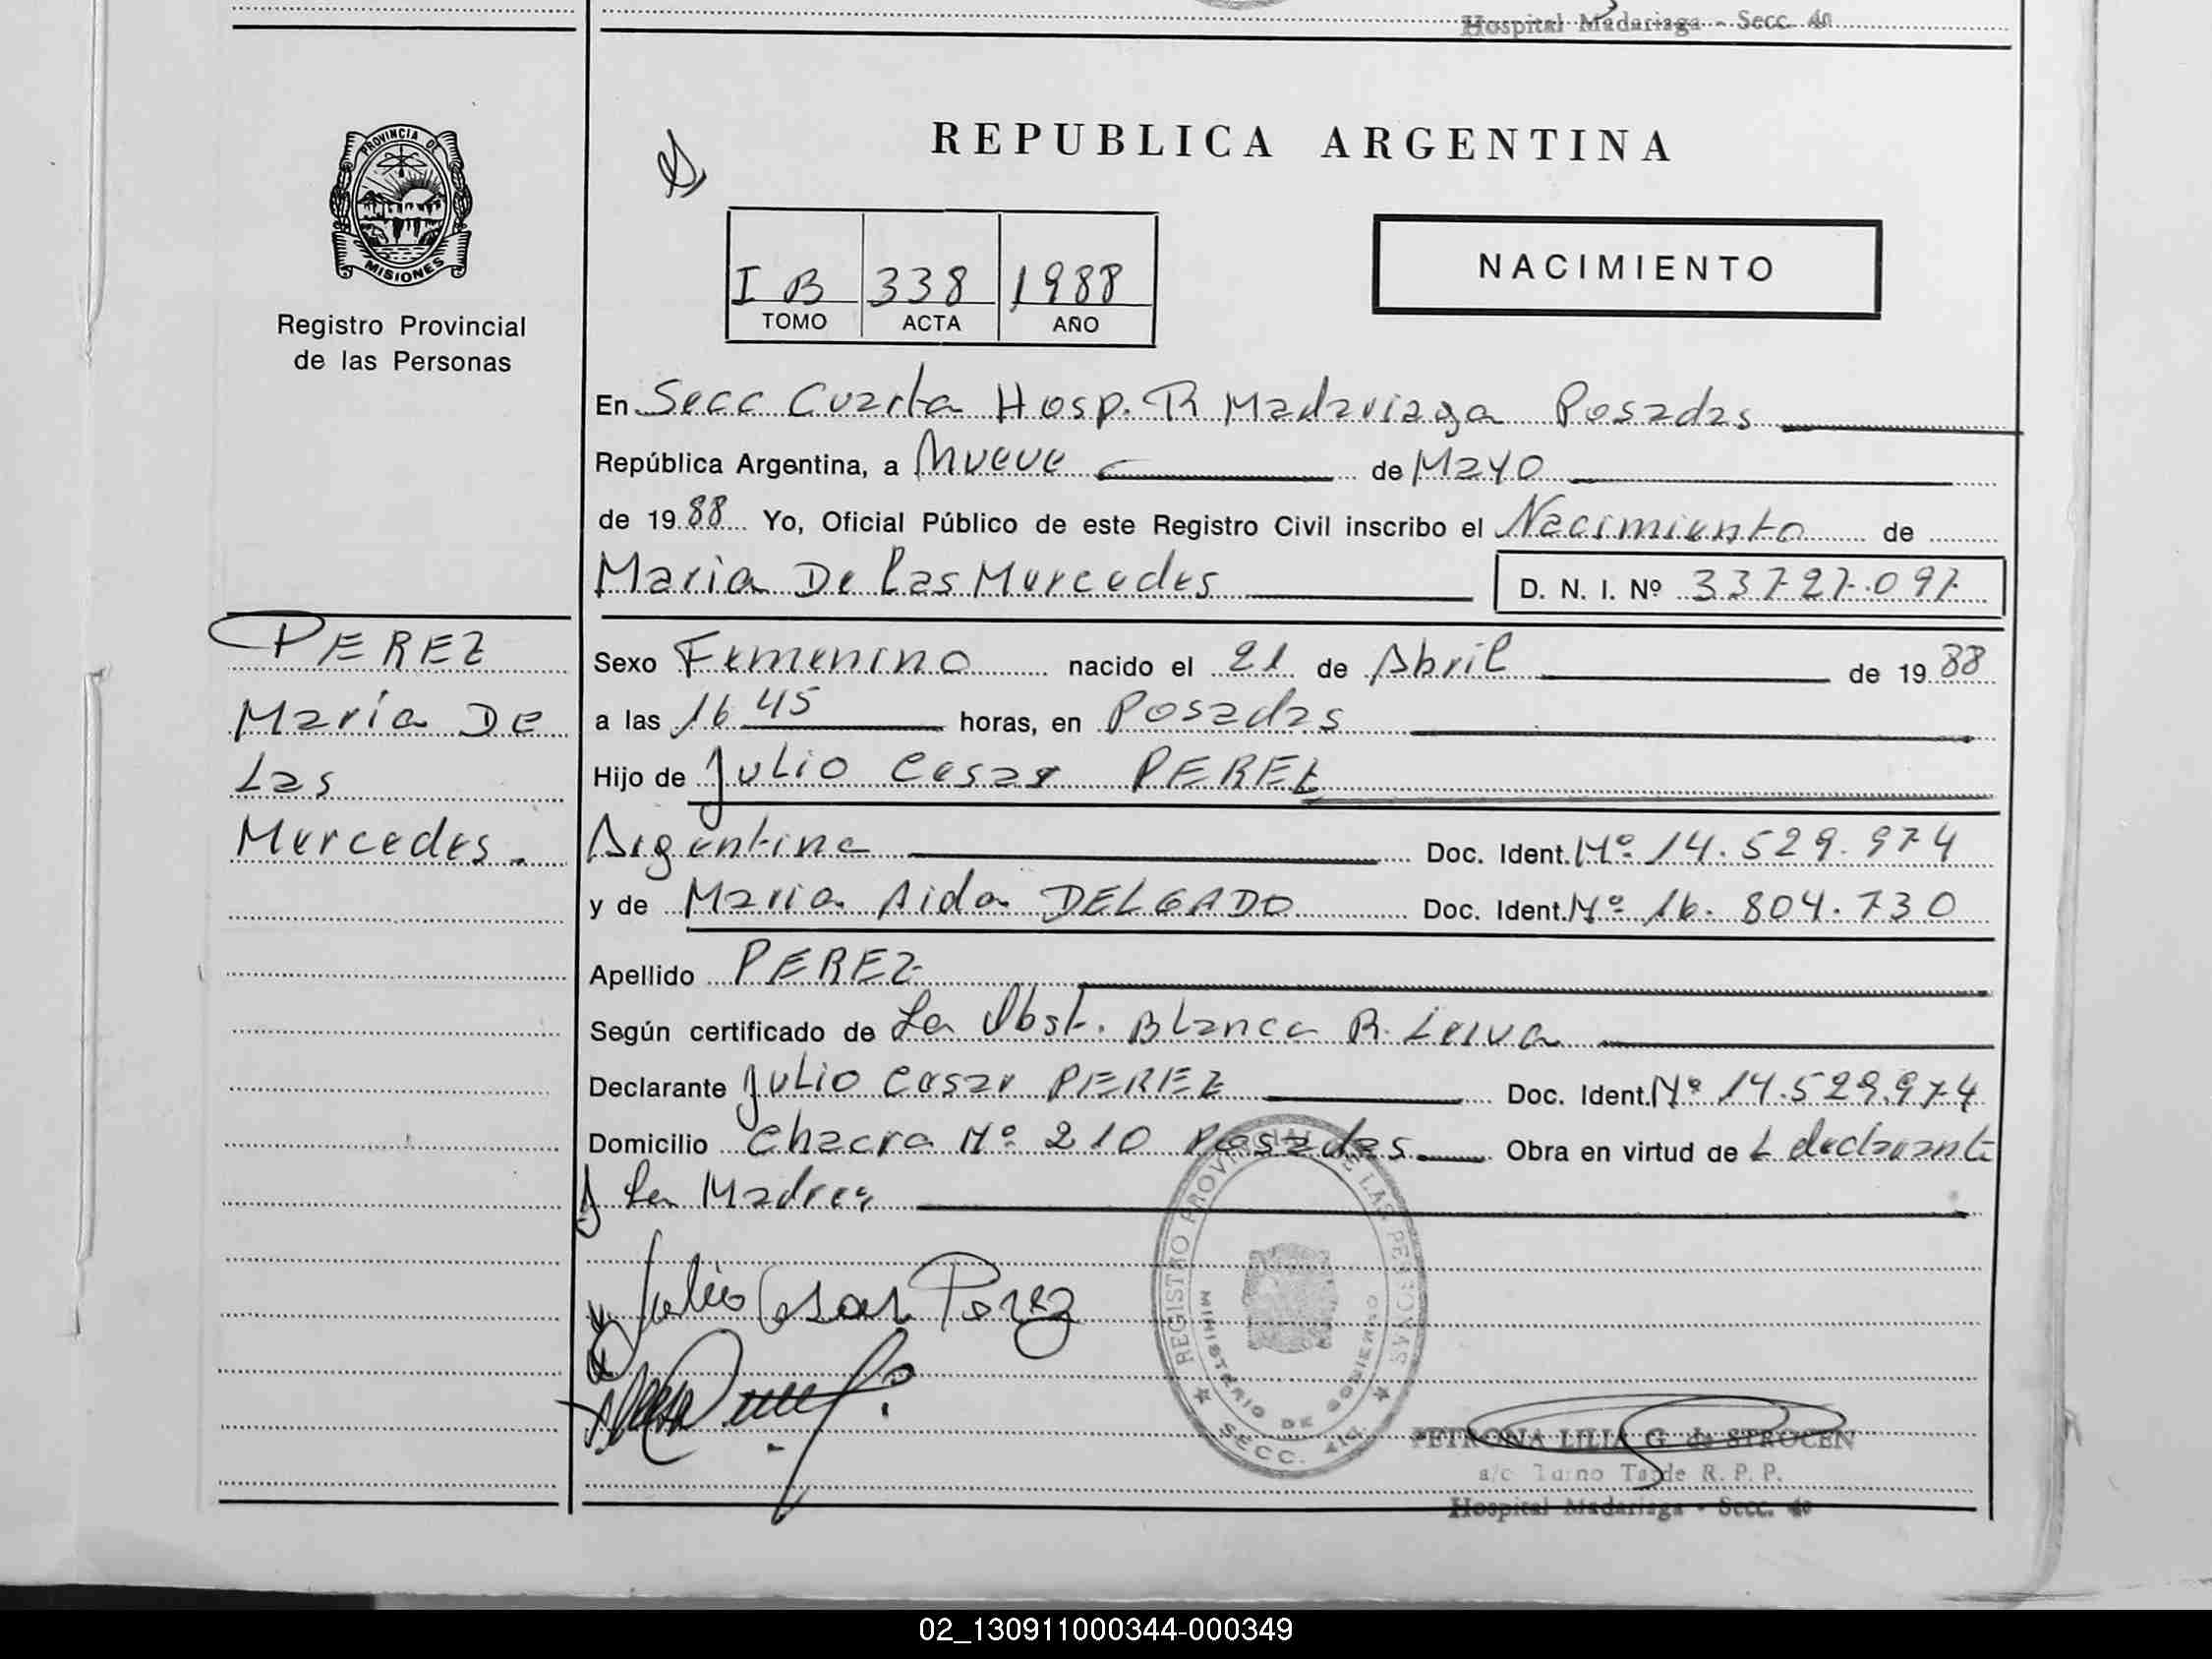 Hospital Madariaga - Secc. 4a
PROVINCIA DE
MISIONES
Registro Provincial
de las Personas
REPUBLICA ARGENTINA
I B 338 1988
TOMO ACTA AÑO
NACIMIENTO
En Secc Cuarta Hosp. R Madariaga Posadas
República Argentina, a Nueve de Mayo
de 1988 Yo, Oficial Público de este Registro Civil inscribo el Nacimiento de
Maria De Las Mercedes D. N. I. Nº 33727.097
PEREZ
María De
Las
Mercedes.
Sexo Femenino nacido el 21 de Abril de 1988
a las 16 45 horas, en Posadas
Hijo de Julio Cesar PEREZ
Argentina Doc. Ident. Nº 14.529.974
y de Maria Aida DELGADO Doc. Ident. Nº 16.804.730
Apellido PEREZ
Según certificado de La Obst. Blanca R. Leiva
Declarante Julio Cesar PEREZ Doc. Ident. Nº 14.529.974
Domicilio Chacra Nº 210 Posadas Obra en virtud de L declarante
y La Madre
Julio Cesar Perez
REGISTRO PROVINCIAL DE LAS PERSONAS
MINISTERIO DE GOBIERNO
SECC. 4ta
PETRONA LILIA G. de STROCEN
a/c Turno Tarde R. P. P.
Hospital Madariaga - Secc. 4a
02_130911000344-000349